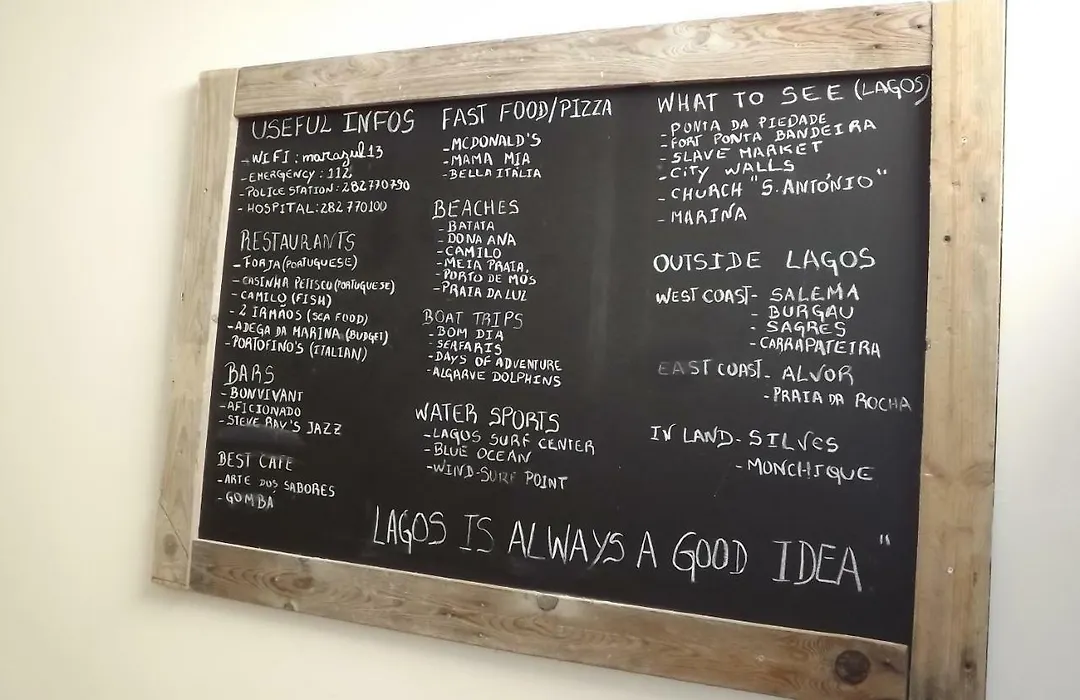 USEFUL INFOS
- WIFI : marazul13
- EMERGENCY : 112
- POLICE STATION : 282770790
- HOSPITAL : 282 770100
RESTAURANTS
- FORJA (PORTUGUESE)
- CASINHA PETISCO (PORTUGUESE)
- CAMILO (FISH)
- 2 IRMÃOS (SEA FOOD)
- ADEGA DA MARINA (BUDGET)
- PORTOFINO'S (ITALIAN)
BARS
- BONVIVANT
- AFICIONADO
- STEVE RAY'S JAZZ
BEST CAFE
- ARTE DOS SABORES
- GOMBÁ
FAST FOOD/PIZZA
- MCDONALD'S
- MAMA MIA
- BELLA ITALIA
BEACHES
- BATATA
- DONA ANA
- CAMILO
- MEIA PRAIA,
- PORTO DE MÓS
- PRAIA DA LUZ
BOAT TRIPS
- BOM DIA
- SEAFARIS
- DAYS OF ADVENTURE
- ALGARVE DOLPHINS
WATER SPORTS
- LAGOS SURF CENTER
- BLUE OCEAN
- WIND-SURF POINT
WHAT TO SEE (LAGOS)
- PONTA DA PIEDADE
- FORT PONTA BANDEIRA
- SLAVE MARKET
- CITY WALLS
- CHURCH "S. ANTÓNIO"
- MARINA
OUTSIDE LAGOS
WEST COAST - SALEMA
- BURGAU
- SAGRES
- CARRAPATEIRA
EAST COAST - ALVOR
- PRAIA DA ROCHA
IN LAND - SILVES
- MONCHIQUE
LAGOS IS ALWAYS A GOOD IDEA "